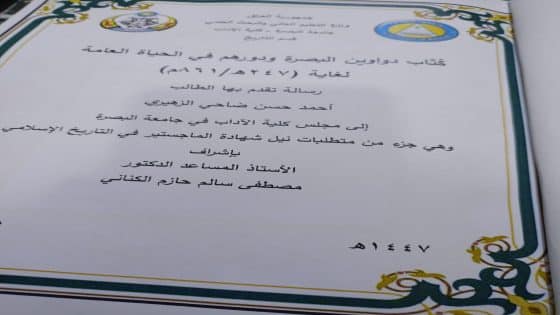 جمهورية العراق
وزارة التعليم العالي والبحث العلمي
جامعة البصرة - كلية الآداب
قسم التاريخ
كتاب دواوين البصرة ودورهم في الحياة العامة
لغاية (٢٤٧هـ/٨٦١م)
رسالة تقدم بها الطالب
أحمد حسن ضاحي الزهيري
إلى مجلس كلية الآداب في جامعة البصرة
وهي جزء من متطلبات نيل شهادة الماجستير في التاريخ الإسلامي
بإشراف
الأستاذ المساعد الدكتور
مصطفى سالم حازم الكناني
١٤٤٧هـ